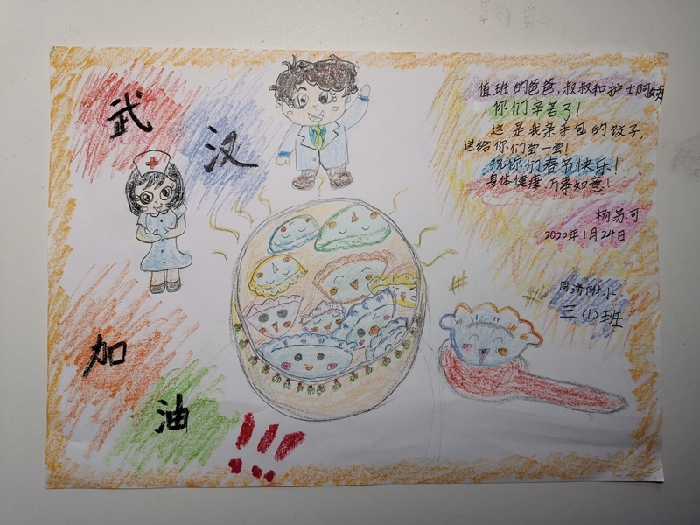 武
汉
加
油
!!!
值班的爸爸、叔叔和护士阿姨
你们辛苦了!
这是我亲手包的饺子,
送给你们尝一尝!
祝你们春节快乐!
身体健康,万事如意!
杨芳可
2022年1月24日
同济附小
三(1)班